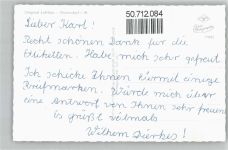 50.712.084
Lieber Karl!
Recht schönen Dank für die
Etiketten. Habe mich sehr gefreut.
Ich schicke Ihnen einige
Briefmarken. Würde mich über
eine Antwort von Ihnen sehr freuen
Es grüßt vielmals
Wilhelm Dierkes!